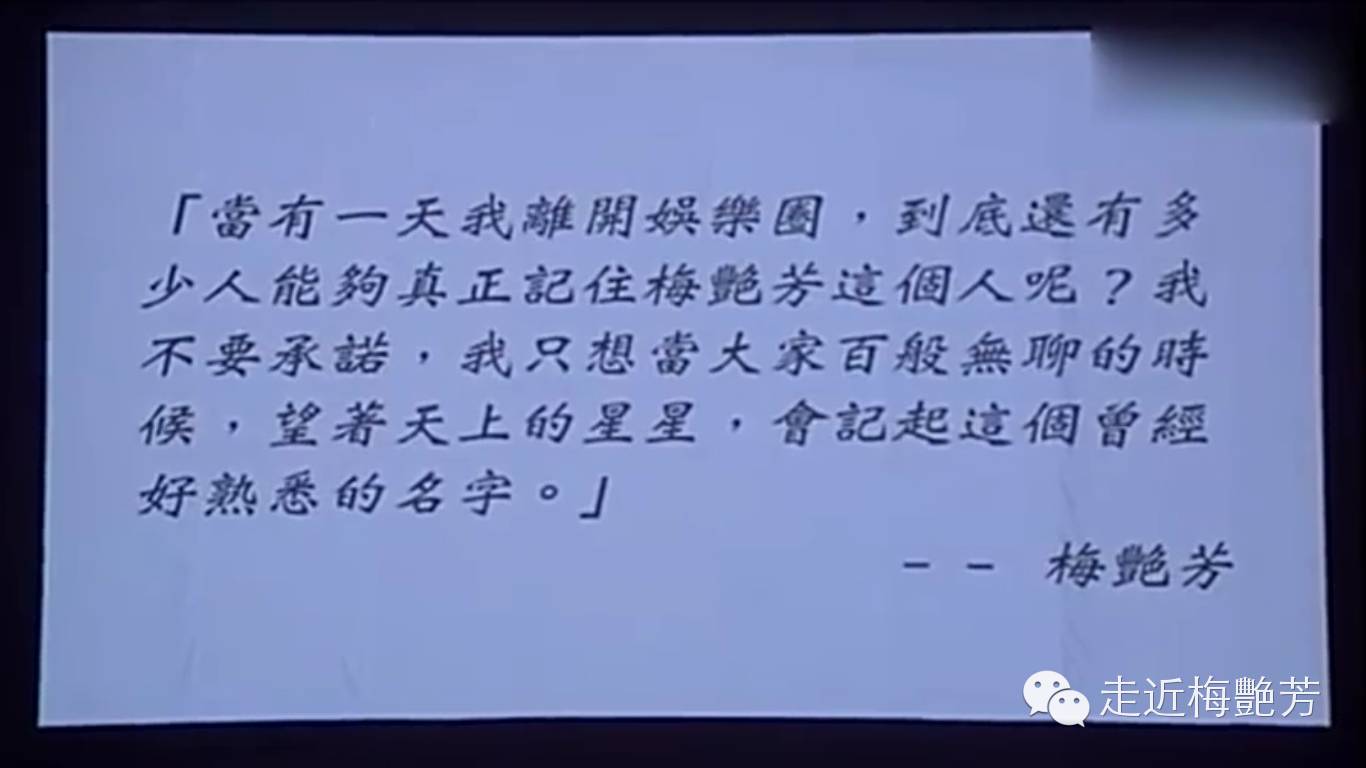 「當有一天我離開娛樂圈，到底還有多
少人能夠真正記住梅艷芳這個人呢？我
不要承諾，我只想當大家百般無聊的時
候，望著天上的星星，會記起這個曾經
好熟悉的名字。」
-- 梅艷芳
走近梅艷芳